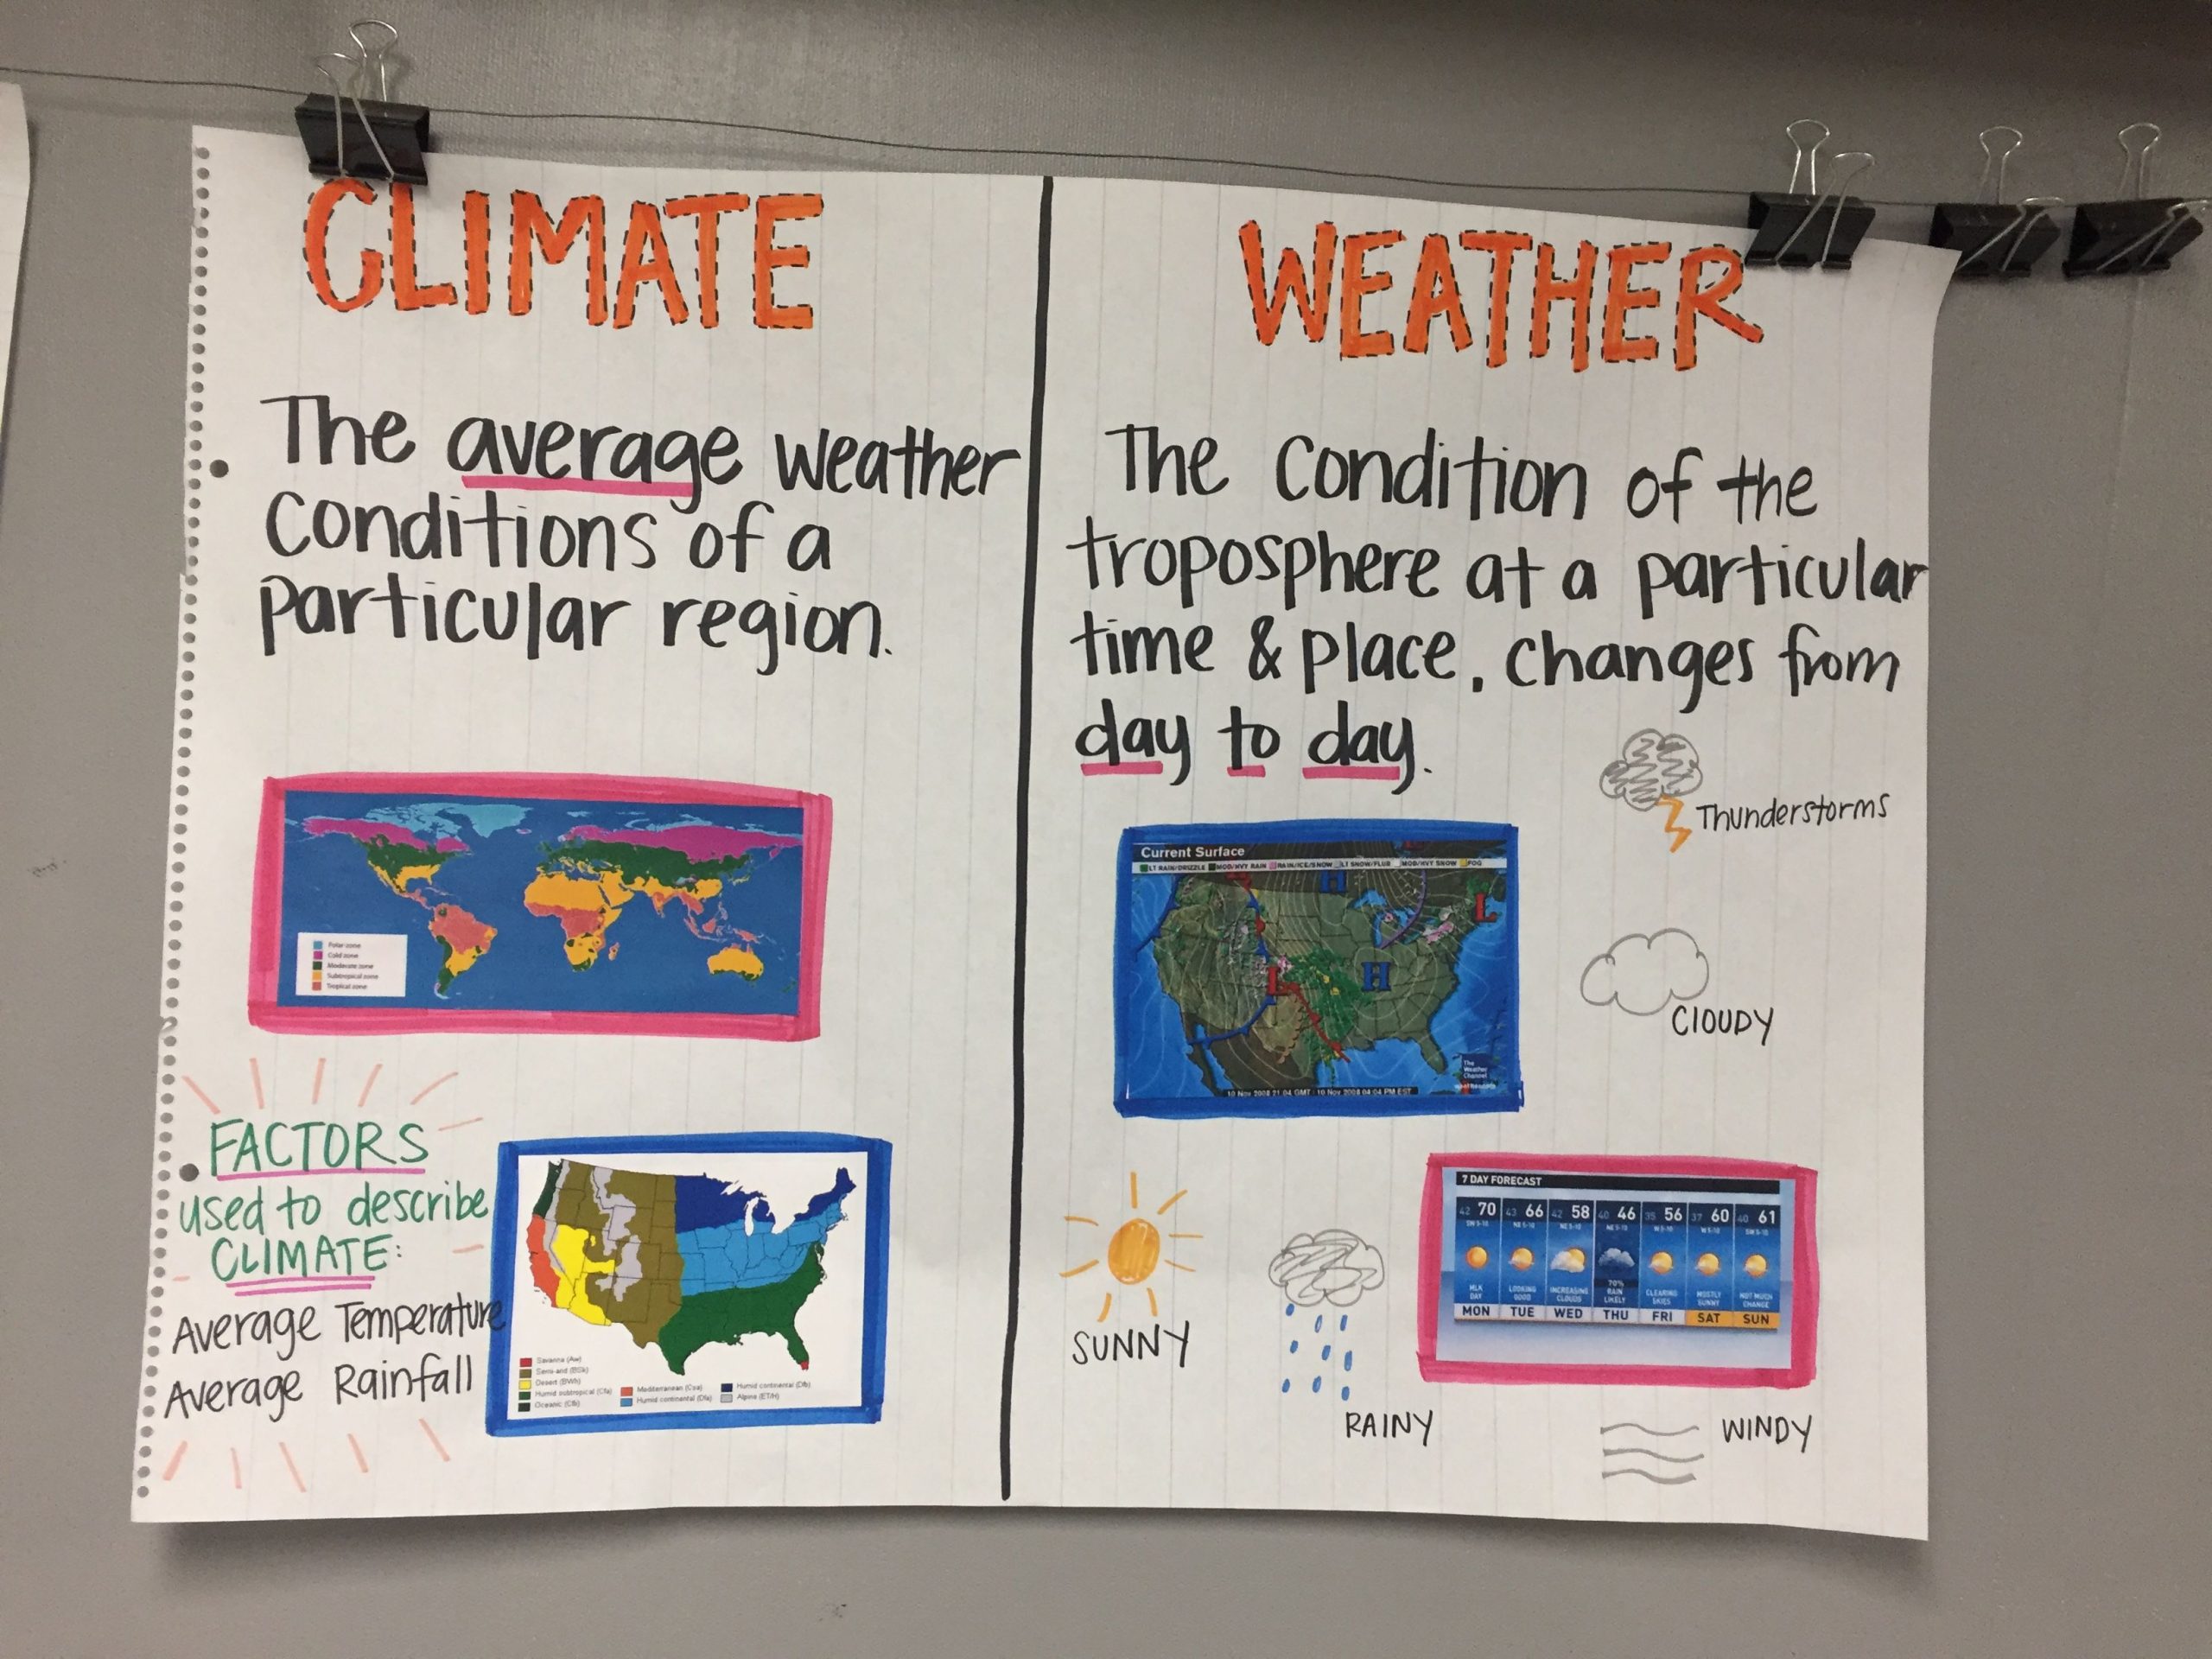 CLIMATE
The average weather
conditions of a
particular region.
Polar zone
Cold zone
Moderate zone
Subtropical zone
Tropical zone
FACTORS
used to describe
CLIMATE:
Average Temperature
Average Rainfall
Savanna (Aw)
Semi-arid (BSk)
Desert (BWh)
Humid subtropical (Cfa)
Oceanic (Cfb)
Mediterranean (Csa)
Humid continental (Dfa)
Humid continental (Dfb)
Alpine (ET/H)
WEATHER
The condition of the
troposphere at a particular
time & place. changes from
day to day.
Thunderstorms
Current Surface
LT RAIN/DRIZZLE MOD/HVY RAIN RAIN/ICE/SNOW LT SNOW/FLUR MOD/HVY SNOW FOG
H
L
L
H
The
Weather
Channel
10 Nov 2008 21:04 GMT / 10 Nov 2008 04:04 PM EST
CLOUDY
SUNNY
RAINY
7 DAY FORECAST
42 70 43 66 42 58 40 46 35 56 37 60 40 61
SW 5-10 NE 5-10 NE 5-10 NE 5-10 W 5-10 W 5-10 SW 5-10
MLK DAY
LOOKING GOOD
INCREASING CLOUDS
70% RAIN LIKELY
CLEARING SKIES
MOSTLY SUNNY
NOT MUCH CHANGE
MON TUE WED THU FRI SAT SUN
WINDY